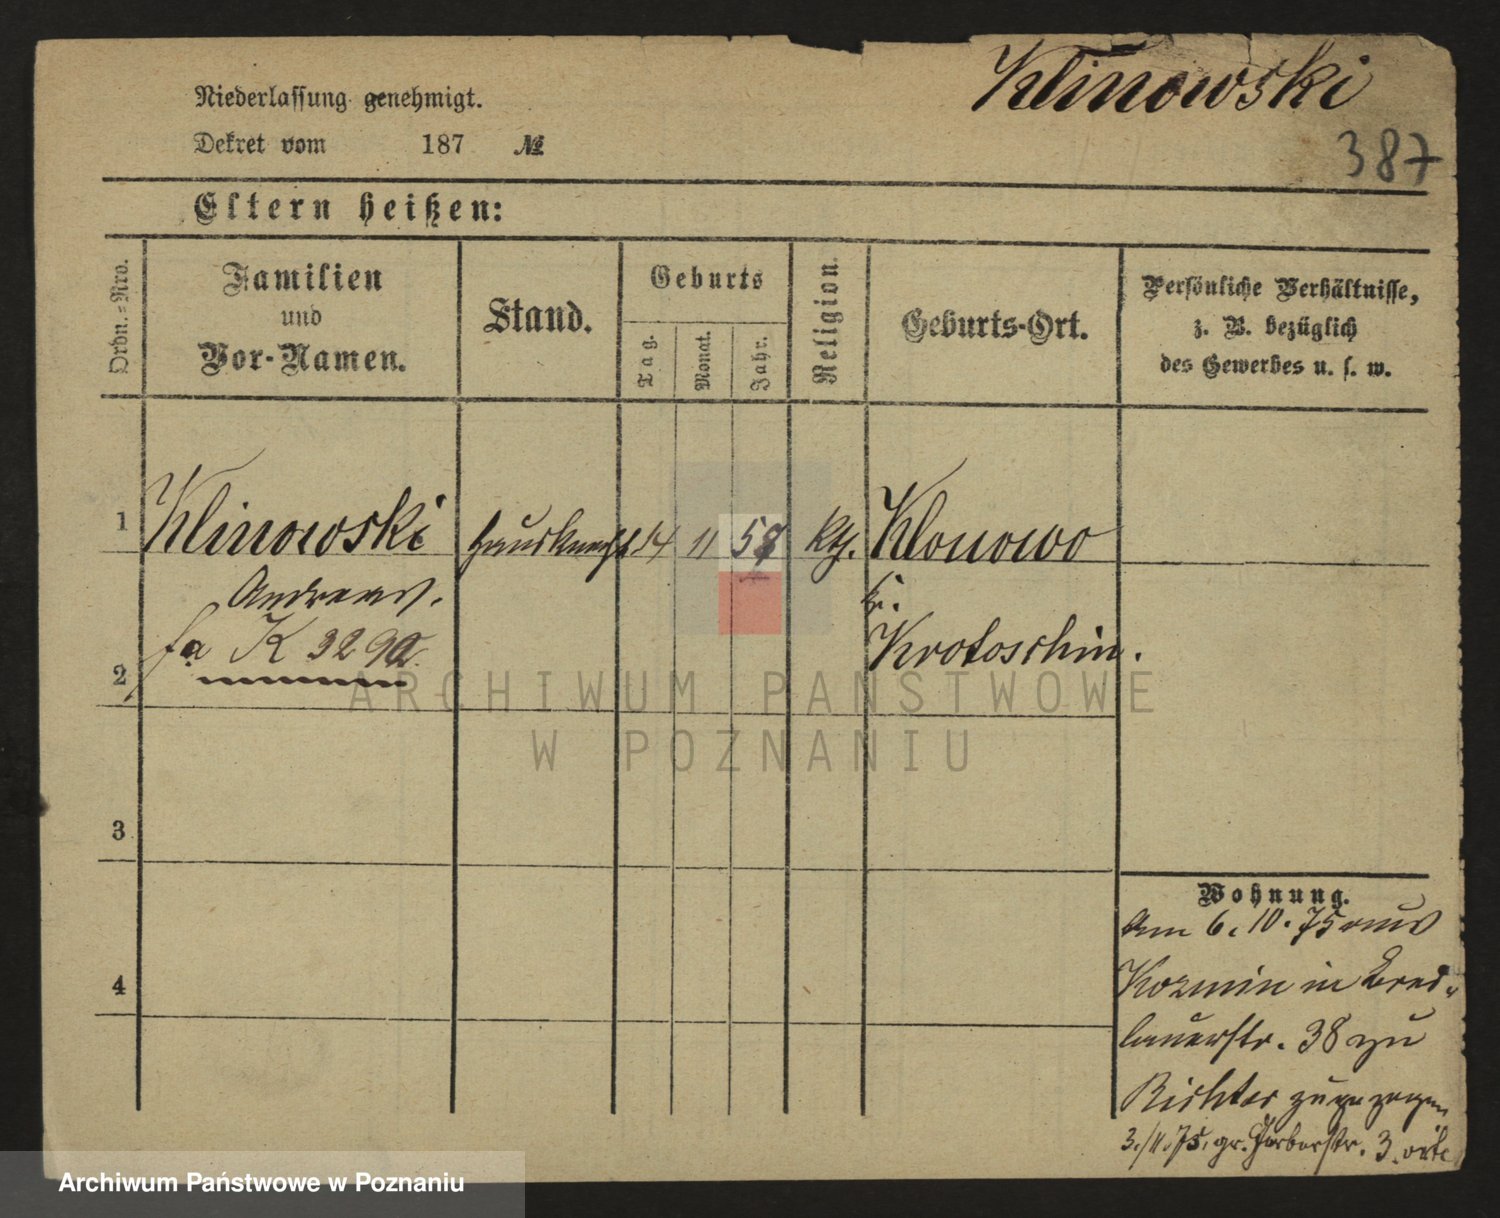 Klinowski
387
Niederlassung genehmigt.
Dekret vom 187 №
Eltern heißen:
Ordn.-Nro.
Familien
und
Vor-Namen.
Stand.
Geburts
Tag.
Monat.
Jahr.
Religion.
Geburts-Ort.
Persönliche Verhältnisse,
z. B. bezüglich
des Gewerbes u. s. w.
1
Klinowski
Hausknecht
14
11
57
kth.
Klonowo
Andreas.
kr.
fa K 3292
Krotoschin.
2
3
4
Wohnung.
Am 6. 10. 75 aus
Kozmin in Bres-
lauerstr. 38 zu
Richter zugezogen
3./11. 75. gr. Gerberstr. 3.
ARCHIWUM PAŃSTWOWE
W POZNANIU
Archiwum Państwowe w Poznaniu